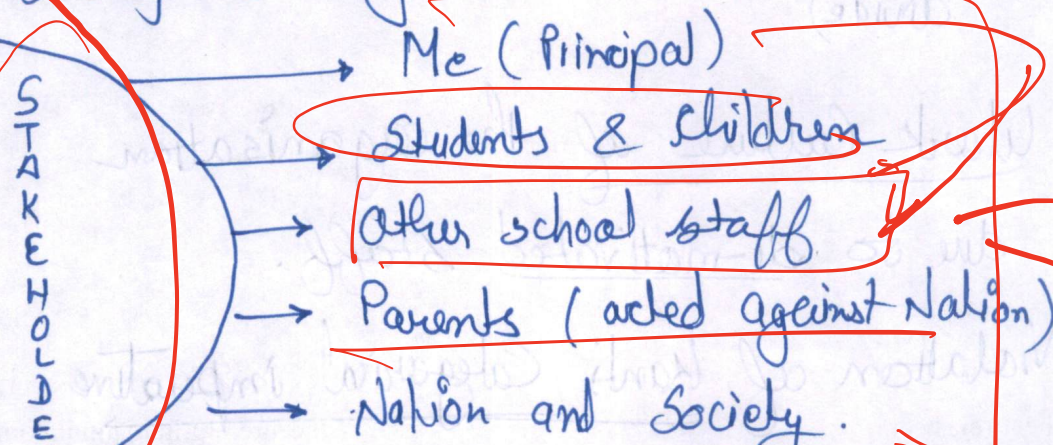 STAKEHOLDE
Me (Principal)
Students & Children
Other school staff
Parents (acted against Nation)
Nation and Society.